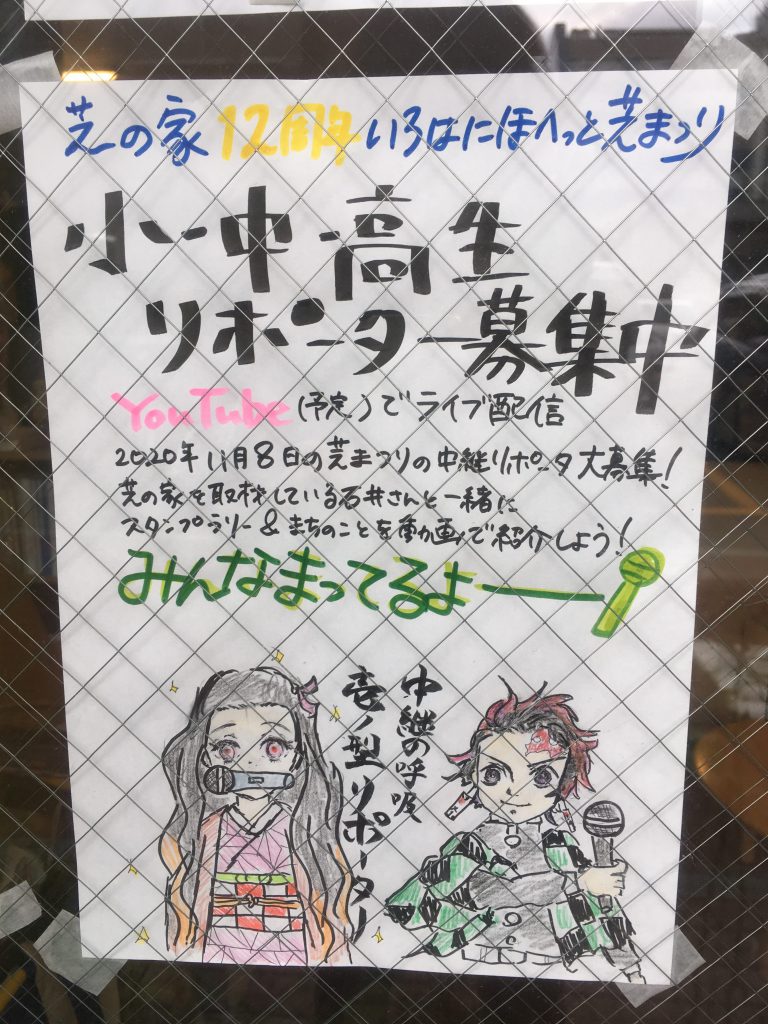 芝の家 12周年 いろはにほへっと芝まつり
小・中・高生
リポーター募集中
YouTube (予定)でライブ配信
2020年11月8日の芝まつりの中継リポータ大募集!
芝の家を取材している石井さんと一緒に
スタンプラリー&まちのことを動画で紹介しよう!
みんなまってるよー
中継の呼吸
壱ノ型リポーター